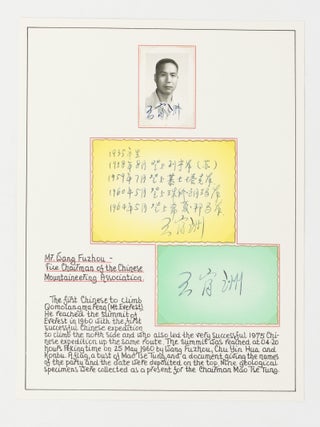 王富洲
1935年生
1958年8月登上列宁峰(苏)
1959年7月登上慕士塔格峰
1960年5月登上珠穆朗玛峰
1964年5月登上希夏邦马峰
王富洲
王富洲
Mr. Wang Fuzhou -
Vice Chairman of the Chinese
Mountaineering Association.
The first Chinese to climb
Qomolangma Feng (Mt. Everest)
He reached the summit of
Everest in 1960 with the first
successful Chinese expedition
to climb the north side and who also led the very successful 1975 Chi-
nese expedition up the same route. The summit was reached at 04.20
hours Peking time on 25 May 1960 by Wang Fuzhou, Chu Yin Hua and
Konbu. A flag, a bust of Mao Tse Tung, and a document giving the names
of the party and the date were deposited on the top. Nine geological
specimens were collected as a present for the Chairman Mao Tse Tung.